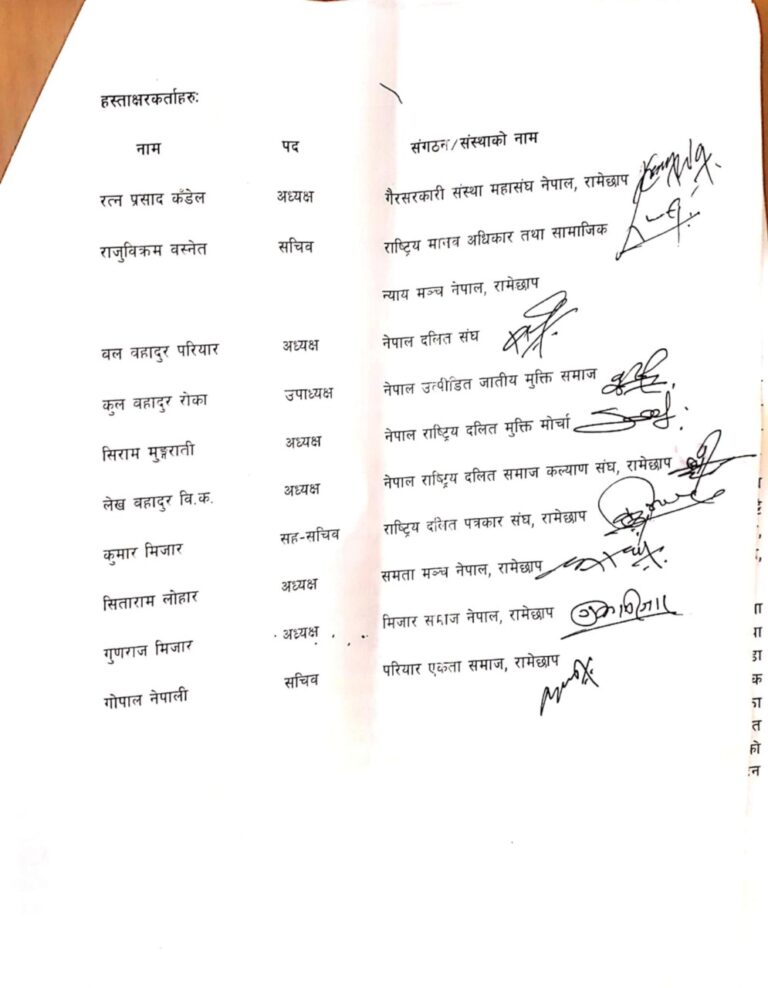 हस्ताक्षरकर्ताहरु:
नाम पद संगठन/संस्थाको नाम
रत्न प्रसाद कँडेल अध्यक्ष गैरसरकारी संस्था महासंघ नेपाल, रामेछाप
राजुविक्रम वस्नेत सचिव राष्ट्रिय मानव अधिकार तथा सामाजिक
न्याय मञ्च नेपाल, रामेछाप
वल वहादुर परियार अध्यक्ष नेपाल दलित संघ
कुल वहादुर रोका उपाध्यक्ष नेपाल उत्पीडित जातीय मुक्ति समाज
सिराम मुङ्गराती अध्यक्ष नेपाल राष्ट्रिय दलित मुक्ति मोर्चा
लेख वहादुर वि.क. अध्यक्ष नेपाल राष्ट्रिय दलित समाज कल्याण संघ, रामेछाप
कुमार मिजार सह-सचिव राष्ट्रिय दलित पत्रकार संघ, रामेछाप
सिताराम लोहार अध्यक्ष समता मञ्च नेपाल, रामेछाप
गुणराज मिजार अध्यक्ष मिजार समाज नेपाल, रामेछाप
गोपाल नेपाली सचिव परियार एकता समाज, रामेछाप